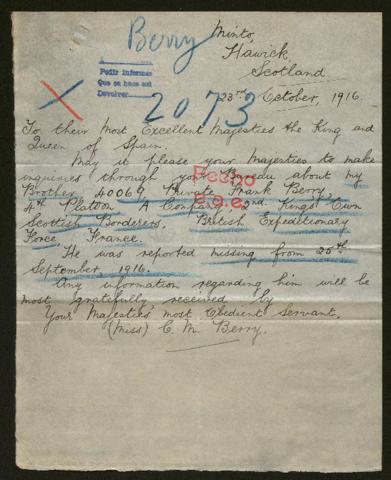 Berry
Minto,
Hawick,
Scotland
Pedir informes
Que se hace así
Devolver
2073
23rd October, 1916.
To their Most Excellent Majesties the King and
Queen of Spain.
May it please your Majesties to make
inquiries through your Bureau about my
Brother 40069 Private Frank Berry,
4th Platoon A Company 2nd. Kings Own
Scottish Borderers. British Expeditionary
Force France.
He was reported missing from 25th
September, 1916.
Any information regarding him will be
most gratefully, received by
Your Majesties' most Obedient Servant.
(Miss) C. M. Berry.